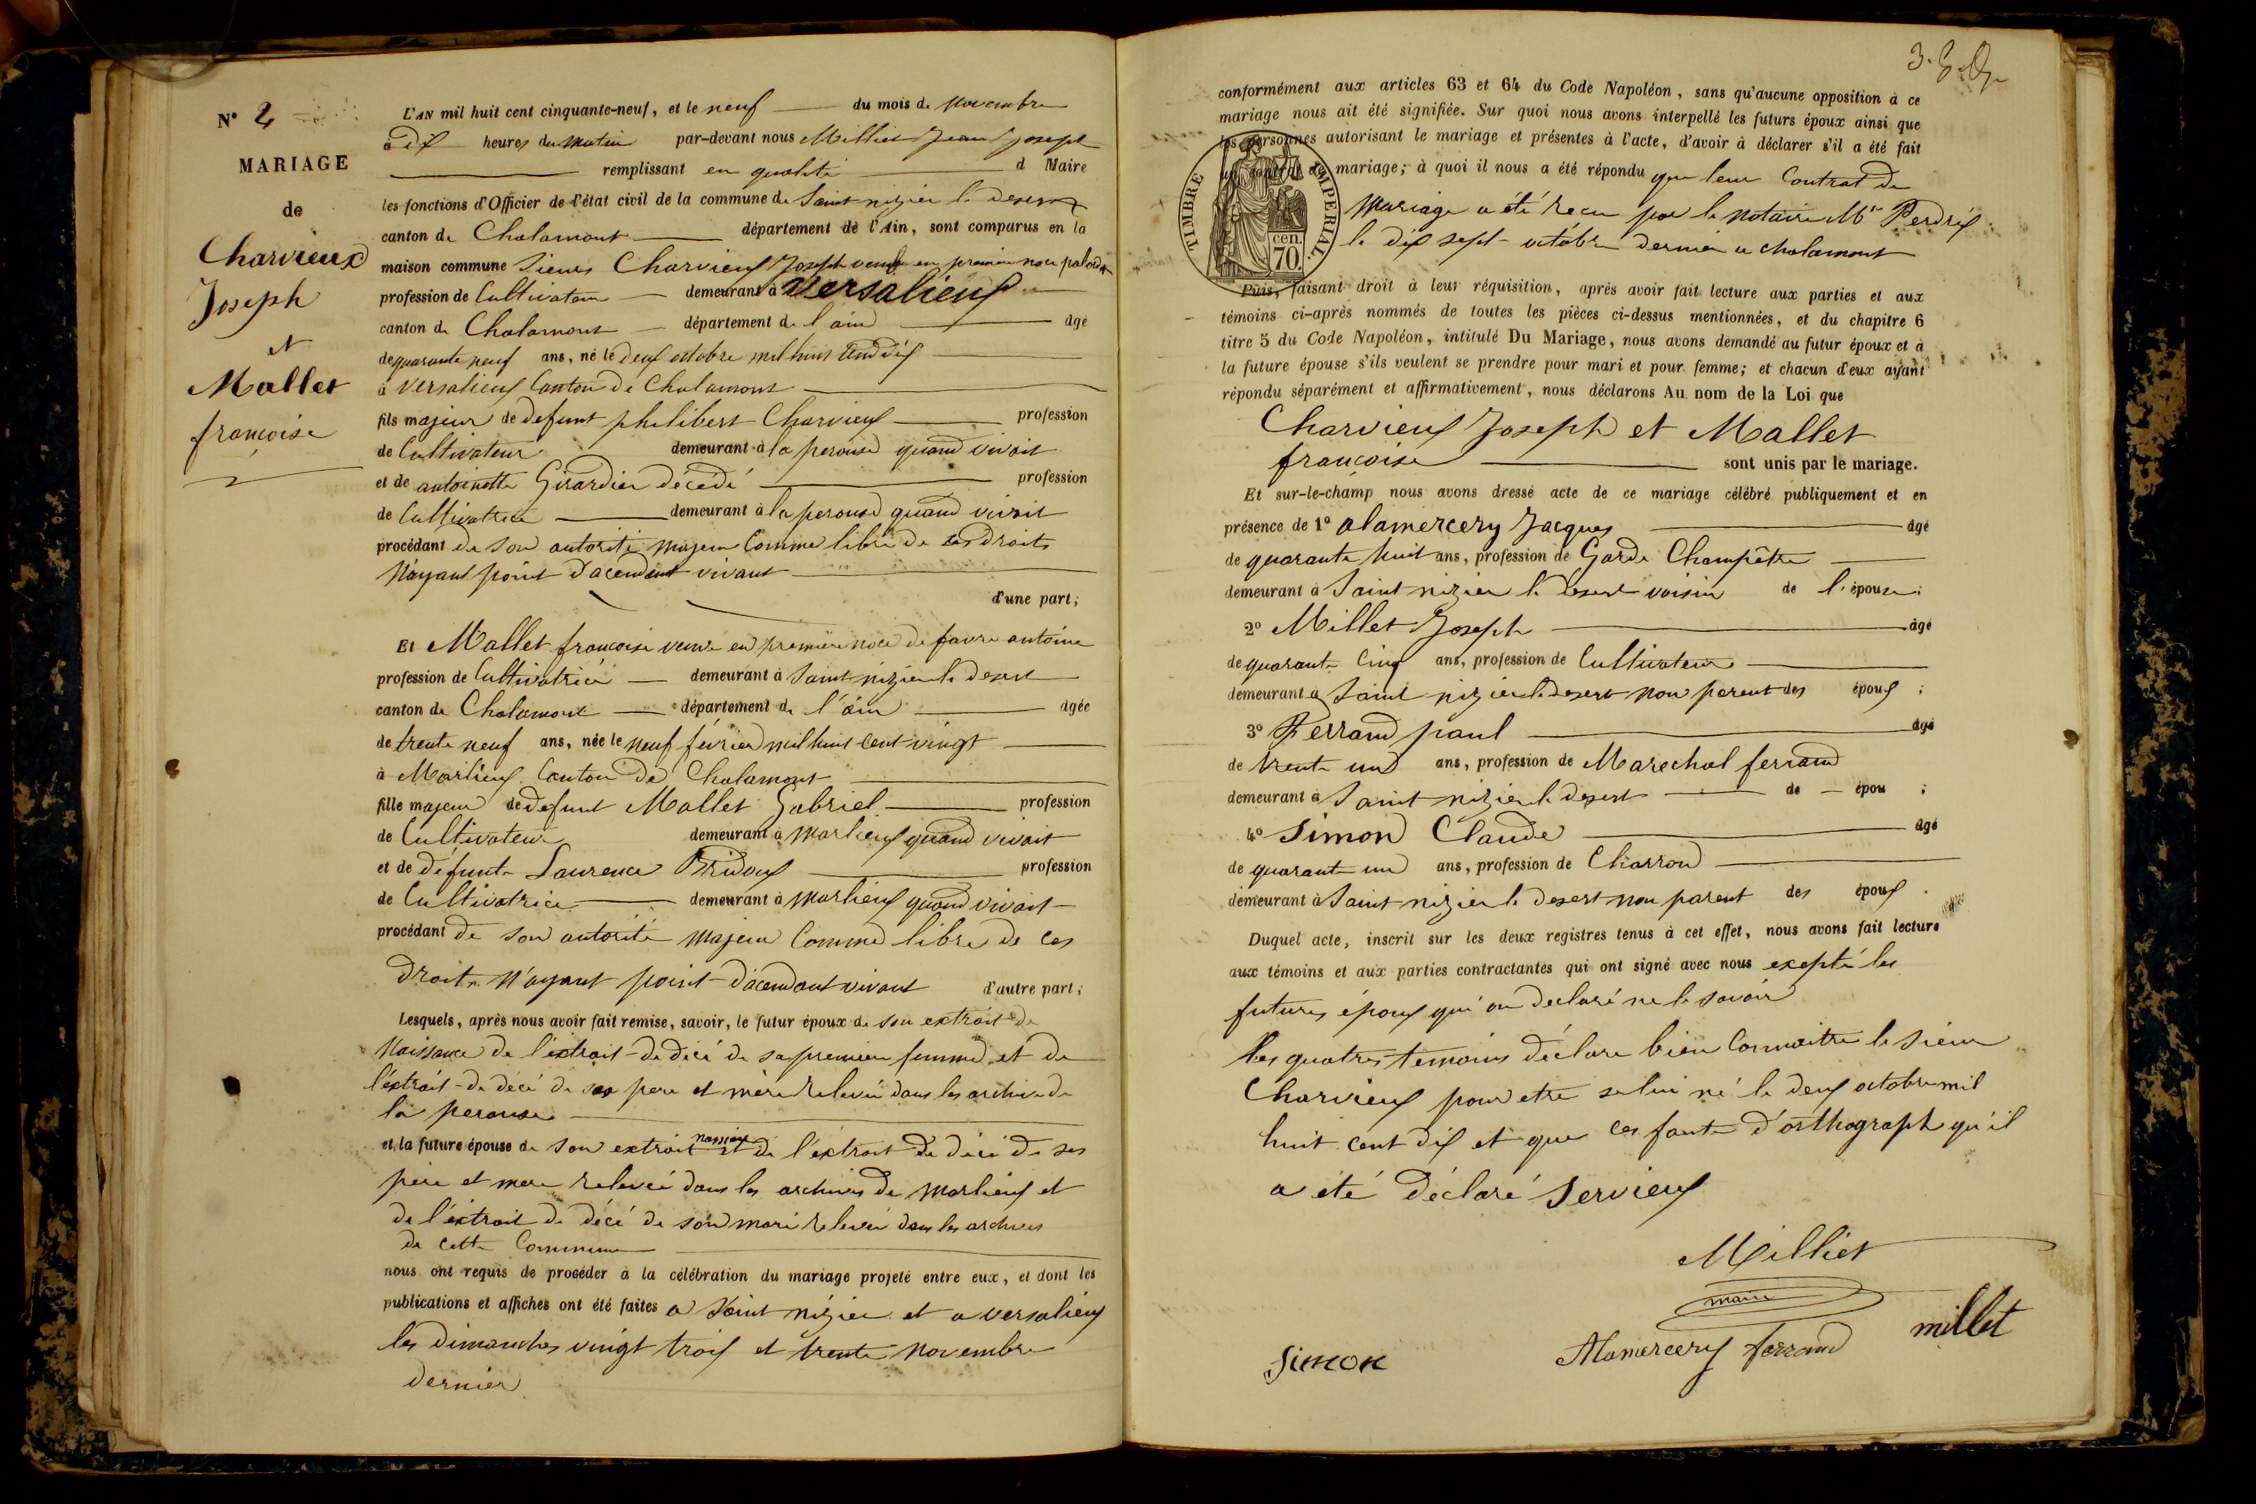 N° 4
MARIAGE
de
Charvieux
Joseph
et
Mallet
francoise
L'AN mil huit cent cinquante-neuf, et le neuf du mois de novembre
a dix heures du matin par-devant nous Milliet Jean Joseph
remplissant en qualité d Maire
les fonctions d'Officier de l'état civil de la commune de Saint nizier le desert
canton de Chalamont département de l'Ain, sont comparus en la
maison commune Sieurs Charvieux Joseph veuf en premiere noce
profession de Cultivateur demeurant à Versalieux
canton de Chalamont département de l'ain âgé
de quarante neuf ans, né le deux octobre mil huit Cent dix
à Versalieux Canton de Chalamont
fils majeur de defunt philibert Charvieux profession
de Cultivateur demeurant à la perouse quand vivait
et de antoinette Girardier décédé profession
de Cultivatrice demeurant à la perouse quand vivait
procédant de son autorité majeur Comme libre de ses droits
N'ayant point d'acendant vivant
d'une part;
Et Mallet francoise veuve en premiere noce de favre antoine
profession de Cultivatrice demeurant à Saint nizier le desert
canton de Chalamont département de l'ain âgée
de trente neuf ans, née le neuf février mil huit Cent vingt
à Marlieux Canton de Chalamont
fille majeur de defunt Mallet Gabriel profession
de Cultivateur demeurant à marlieux quand vivait
et de défunte Laurence Bridoux profession
de Cultivatrice demeurant à marlieux quand vivait
procédant de son autorité majeur Comme libre de ces
droits N'ayant point d'acendant vivant d'autre part;
Lesquels, après nous avoir fait remise, savoir, le futur époux de son extrait de
Naissance de l'extrait de décé de sa premiere femme et de
l'éxtrait de décé de ses pere et mère relevée dans les archive de
la perouse
et la future épouse de son extrait naissance et de l'éxtrait de décé de ses
père et mere relevée dans les archives de marlieux et
de l'éxtrait de décé de son mari relevée dans les archives
de cette Commune
nous ont requis de procéder à la célébration du mariage projeté entre eux, et dont les
publications et affiches ont été faites a Saint nizier et a versalieux
les dimanches vingt trois et trente novembre
dernier
conformément aux articles 63 et 64 du Code Napoléon, sans qu'aucune opposition à ce
mariage nous ait été signifiée. Sur quoi nous avons interpellé les futurs époux ainsi que
les personnes autorisant le mariage et présentes à l'acte, d'avoir à déclarer s'il a été fait
un contrat de mariage; à quoi il nous a été répondu que leur Contrat de
mariage a été recu par le notaire Me Perdrix
le dix sept octobre dernier a chalamont
TIMBRE IMPERIAL
70 cen.
Puis, faisant droit à leur réquisition, après avoir fait lecture aux parties et aux
témoins ci-après nommés de toutes les pièces ci-dessus mentionnées, et du chapitre 6
titre 5 du Code Napoléon, intitulé Du Mariage, nous avons demandé au futur époux et à
la future épouse s'ils veulent se prendre pour mari et pour femme; et chacun d'eux ayant
répondu séparément et affirmativement, nous déclarons Au nom de la Loi que
Charvieux Joseph et Mallet
francoise sont unis par le mariage.
Et sur-le-champ nous avons dressé acte de ce mariage célébré publiquement et en
présence de 1° alamercery Jacques âgé
de quarante huit ans, profession de Garde Champêtre
demeurant à Saint nizier le desert voisin de l'épouse;
2° Millet Joseph âgé
de quarante Cinq ans, profession de Cultivateur
demeurant à Saint nizier le desert non parent des époux;
3° Ferrand paul âgé
de trente un ans, profession de Marechal ferrand
demeurant à Saint nizier le desert de épou;
4° Simon Claude âgé
de quarante un ans, profession de Charron
demeurant à Saint nizier le desert non parent des époux.
Duquel acte, inscrit sur les deux registres tenus à cet effet, nous avons fait lecture
aux témoins et aux parties contractantes qui ont signé avec nous exepté les
futures époux qui on declaré ne le savoir
les quatres temoins déclare bien Connaitre le sieur
Charvieux pour etre selui né le deux octobre mil
huit cent dix et que ces faute d'orthograph qu'il
a été déclaré Servieux
Milliet
maire
Simon Alamercery ferrand millet